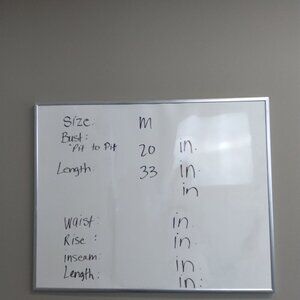 Size: M
Bust:
"Pit to Pit 20 in.
Length 33 in.
in
Waist: in.
Rise: in.
Inseam: in
Length: in.